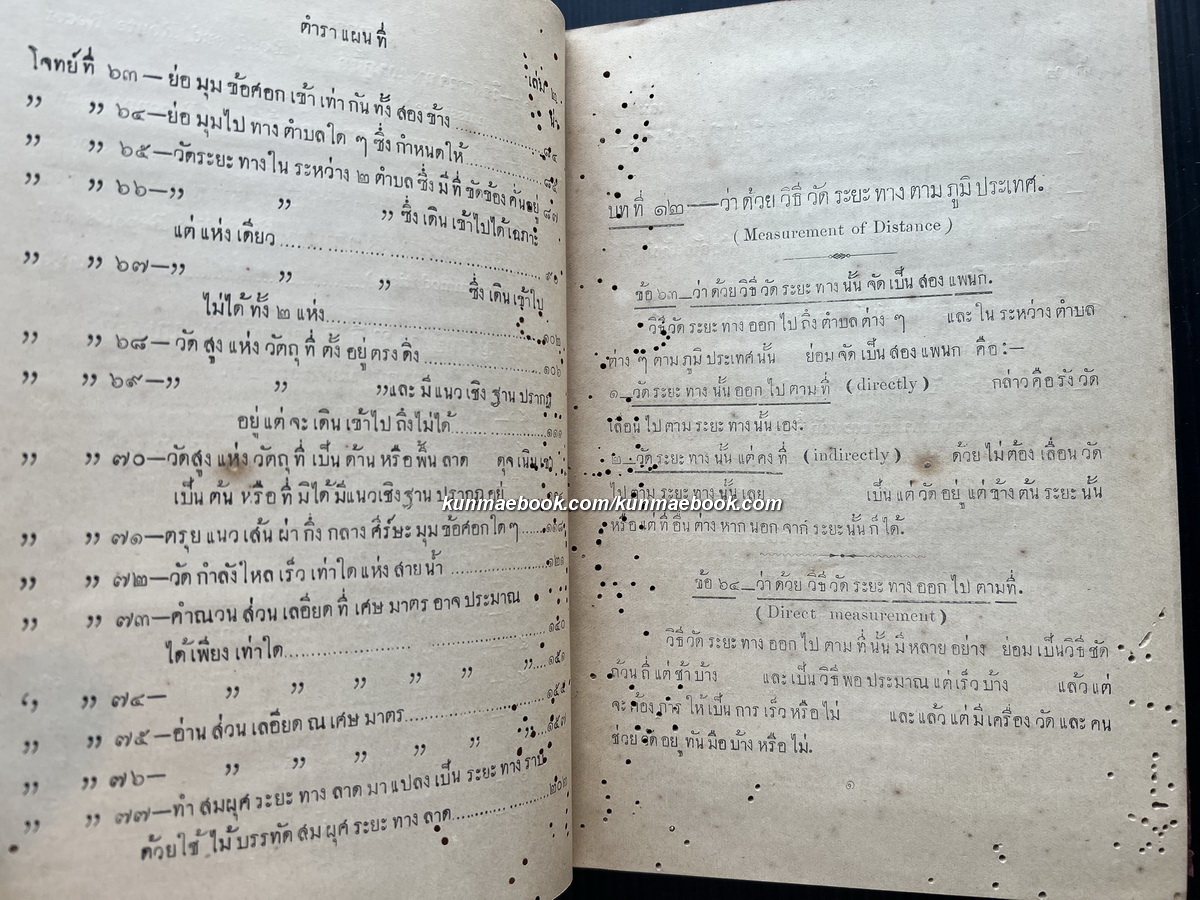 ตำราแผนที่
เล่ม ๒
โจทย์ที่ ๖๓—ย่อมุมข้อศอกเข้าเท่ากันทั้งสองข้าง
” ” ๖๔—ย่อมุมไปทางตำบลใด ๆ ซึ่งกำหนดให้
” ” ๖๕—วัดระยะทางในระหว่าง ๒ ตำบลซึ่งมีที่ขัดข้องคั่นอยู่ ๘๗
” ” ๖๖—” ” ” ซึ่งเดินเข้าไปได้เฉภาะ
แต่แห่งเดียว
” ” ๖๗—” ” ” ซึ่งเดินเข้าไป
ไม่ได้ทั้ง ๒ แห่ง ๑๐๒
” ” ๖๘—วัดสูงแห่งวัตถุที่ตั้งอยู่ตรงดิ่ง ๑๐๖
” ” ๖๙—” ” ”และมีแนวเชิงฐานปรากฏ
อยู่แต่จะเดินเข้าไปถึงไม่ได้ ๑๑๑
” ” ๗๐—วัดสูงแห่งวัตถุที่เป็นด้านหรือพื้นลาด ดุจเนินเขา
เป็นต้น หรือที่มิได้มีแนวเชิงฐานปรากฏอยู่
” ” ๗๑—ตรุยแนวเส้นผ่ากึ่งกลางศีร์ษะมุมข้อศอกใดๆ
” ” ๗๒—วัดกำลังไหลเร็วเท่าใดแห่งสายน้ำ ๑๒๑
” ” ๗๓—คำณวนส่วนเลอียดที่เศษมาตรอาจประมาณ
ได้เพียงเท่าใด ๑๕๐
” ” ๗๔— ” ” ” ” ” ” ๑๕๑
” ” ๗๕—อ่านส่วนเลอียด ณ เศษมาตร ๑๕๕
” ” ๗๖— ” ” ” ” ” ” ๑๕๗
” ” ๗๗—ทำสมผุศระยะทางลาดมาแปลงเป็นระยะทางราบ
ด้วยใช้ไม้บรรทัดสมผุศระยะทางลาด ๒๐๒
บทที่ ๑๒—ว่าด้วยวิธีวัดระยะทางตามภูมิประเทศ.
(Measurement of Distance)
ข้อ ๖๓—ว่าด้วยวิธีวัดระยะทางนั้นจัดเป็นสองแพนก.
วิธีวัดระยะทางออกไปถึงตำบลต่าง ๆ และในระหว่างตำบล
ต่าง ๆ ตามภูมิประเทศนั้น ย่อมจัดเป็นสองแพนก คือ:—
๑—วัดระยะทางนั้นออกไปตามที่ (directly) กล่าวคือรังวัด
เลื่อนไปตามระยะทางนั้นเอง.
๒—วัดระยะทางนั้นแต่คงที่ (indirectly) ด้วยไม่ต้องเลื่อนวัด
ไปตามระยะทางนั้นเลย เป็นแต่วัดอยู่แต่ข้างต้นระยะนั้น
หรือแต่ที่อื่นต่างหากนอกจากระยะนั้นก็ได้.
ข้อ ๖๔—ว่าด้วยวิธีวัดระยะทางออกไปตามที่.
(Direct measurement)
วิธีวัดระยะทางออกไปตามที่นั้นมีหลายอย่าง ย่อมเป็นวิธีชัด
ถ้วนถี่แต่ช้าบ้าง และเป็นวิธีพอประมาณแต่เร็วบ้าง แล้วแต่
จะต้องการให้เป็นการเร็วหรือไม่ และแล้วแต่มีเครื่องวัดและคน
ช่วยวัดอยู่ทันมือบ้างหรือไม่.
๑
kunmaebook.com/kunmaebook.com